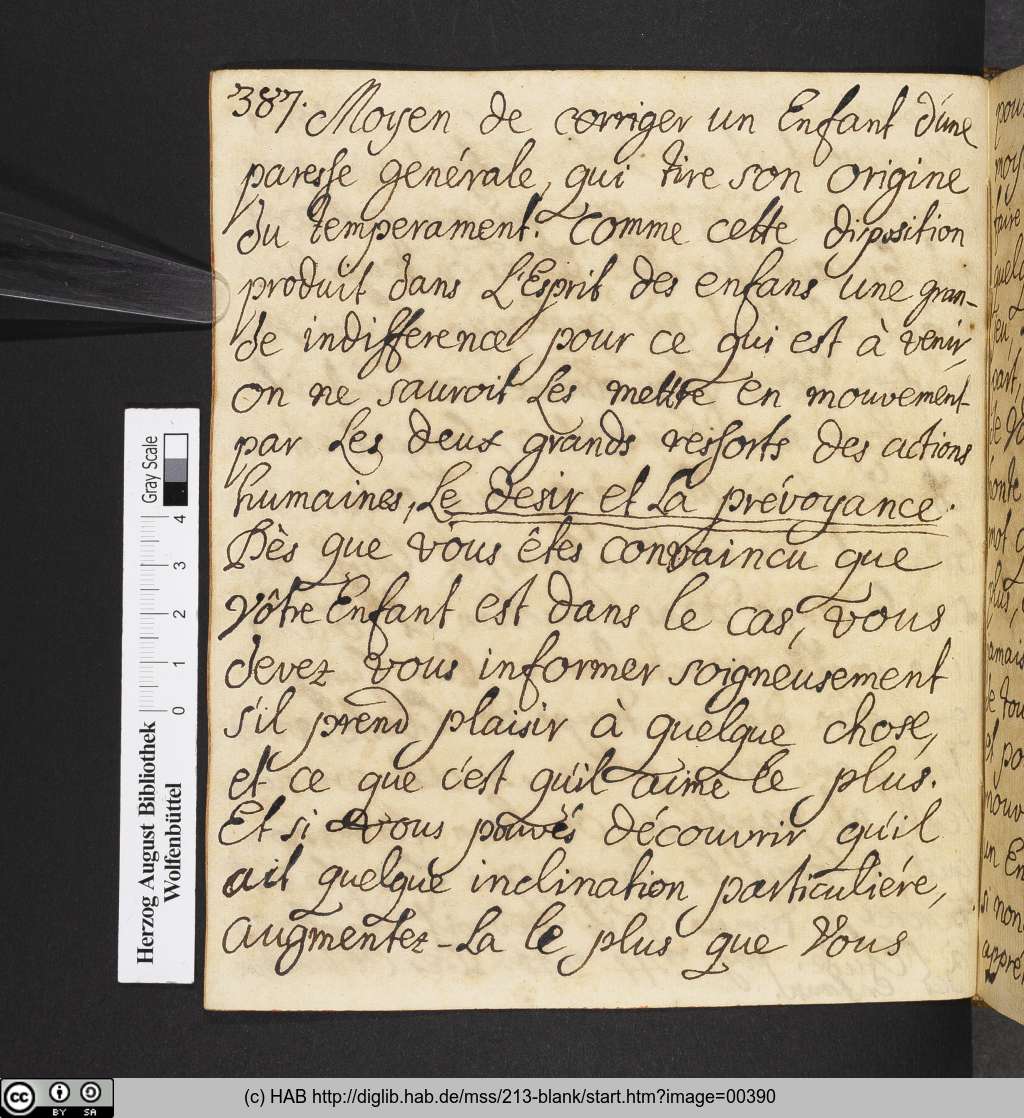 387. Moyen de corriger un Enfant d'une
paresse genérale, qui tire son origine
du temperament. Comme cette disposition
produit dans L'Esprit des enfans une gran-
de indifference, pour ce qui est à venir
on ne sauroit Les mettre en mouvement
par Les deux grands ressorts des actions
humaines, Le desir et La prévoyance.
Dès que vous êtes convaincu que
vôtre Enfant est dans le cas, vous
devez vous informer soigneusement
s'il prend plaisir à quelque chose,
et ce que c'est qu'il aime le plus.
Et si vous pouvés découvrir qu'il
ait quelque inclination particuliére,
augmentez-La le plus que Vous
pour
Gray Scale
4
3
2
1
0
Herzog August Bibliothek
Wolfenbüttel
CC BY SA
(c) HAB http://diglib.hab.de/mss/213-blank/start.htm?image=00390